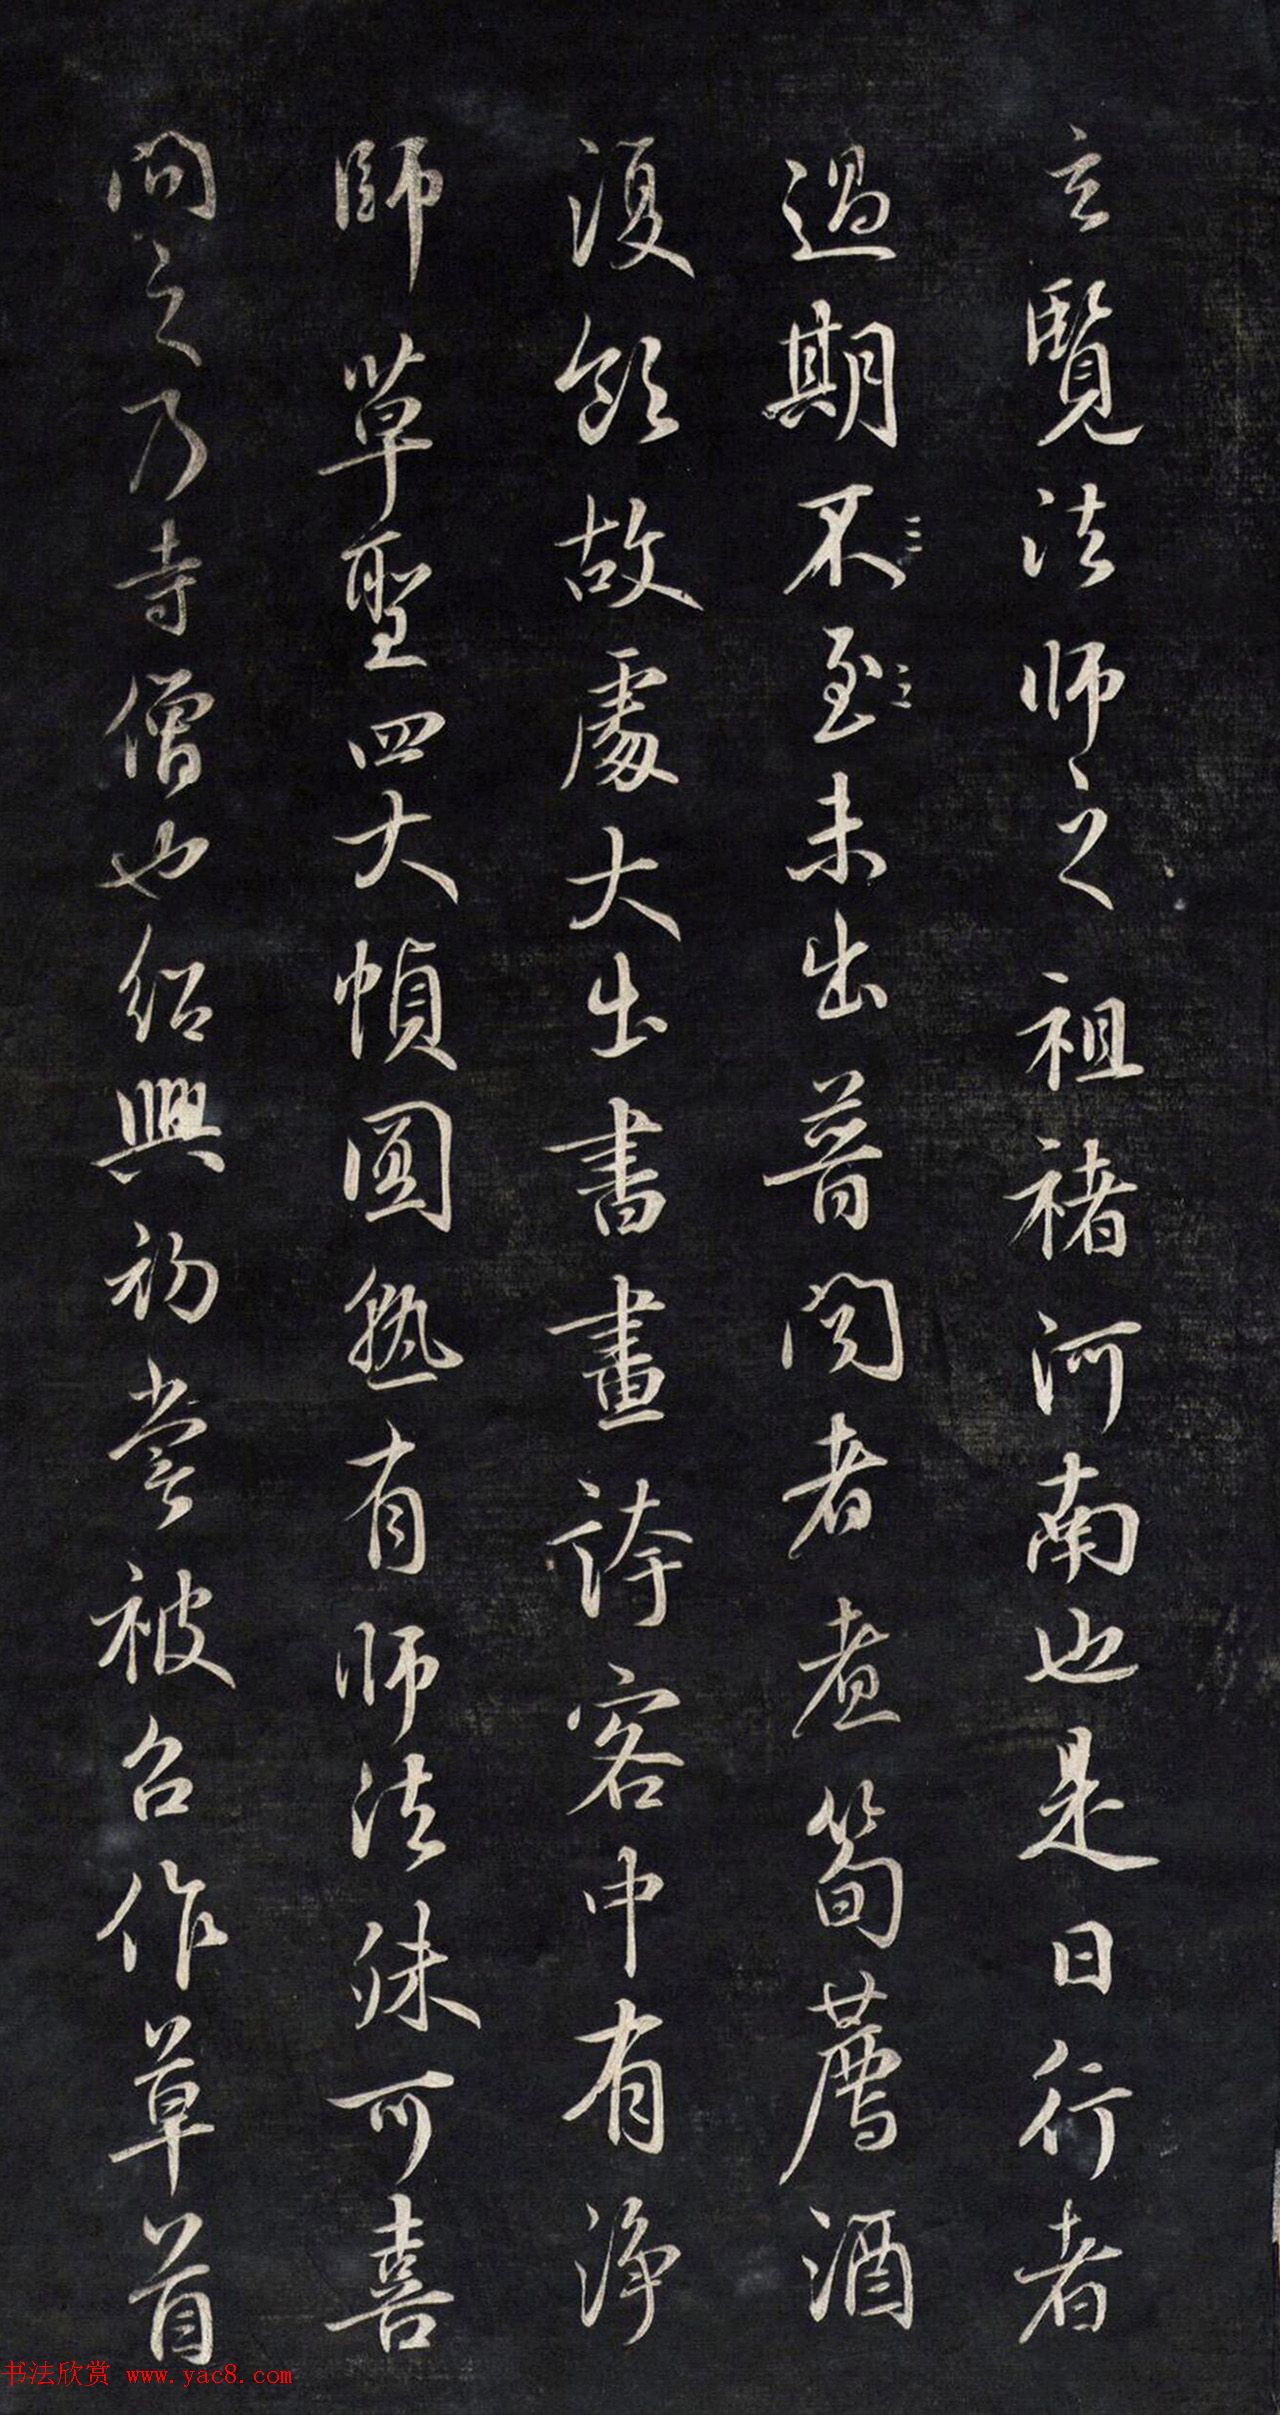 玄覽法师之祖褚河南也是日行者
過期不至未出普閱者煮筍薦酒
復飲故處大出書畫誇客中有淨
師草聖四大幀圓熟有师法殊可喜
問之乃寺僧也紹興初嘗被召作草首
书法欣赏 www.yac8.com